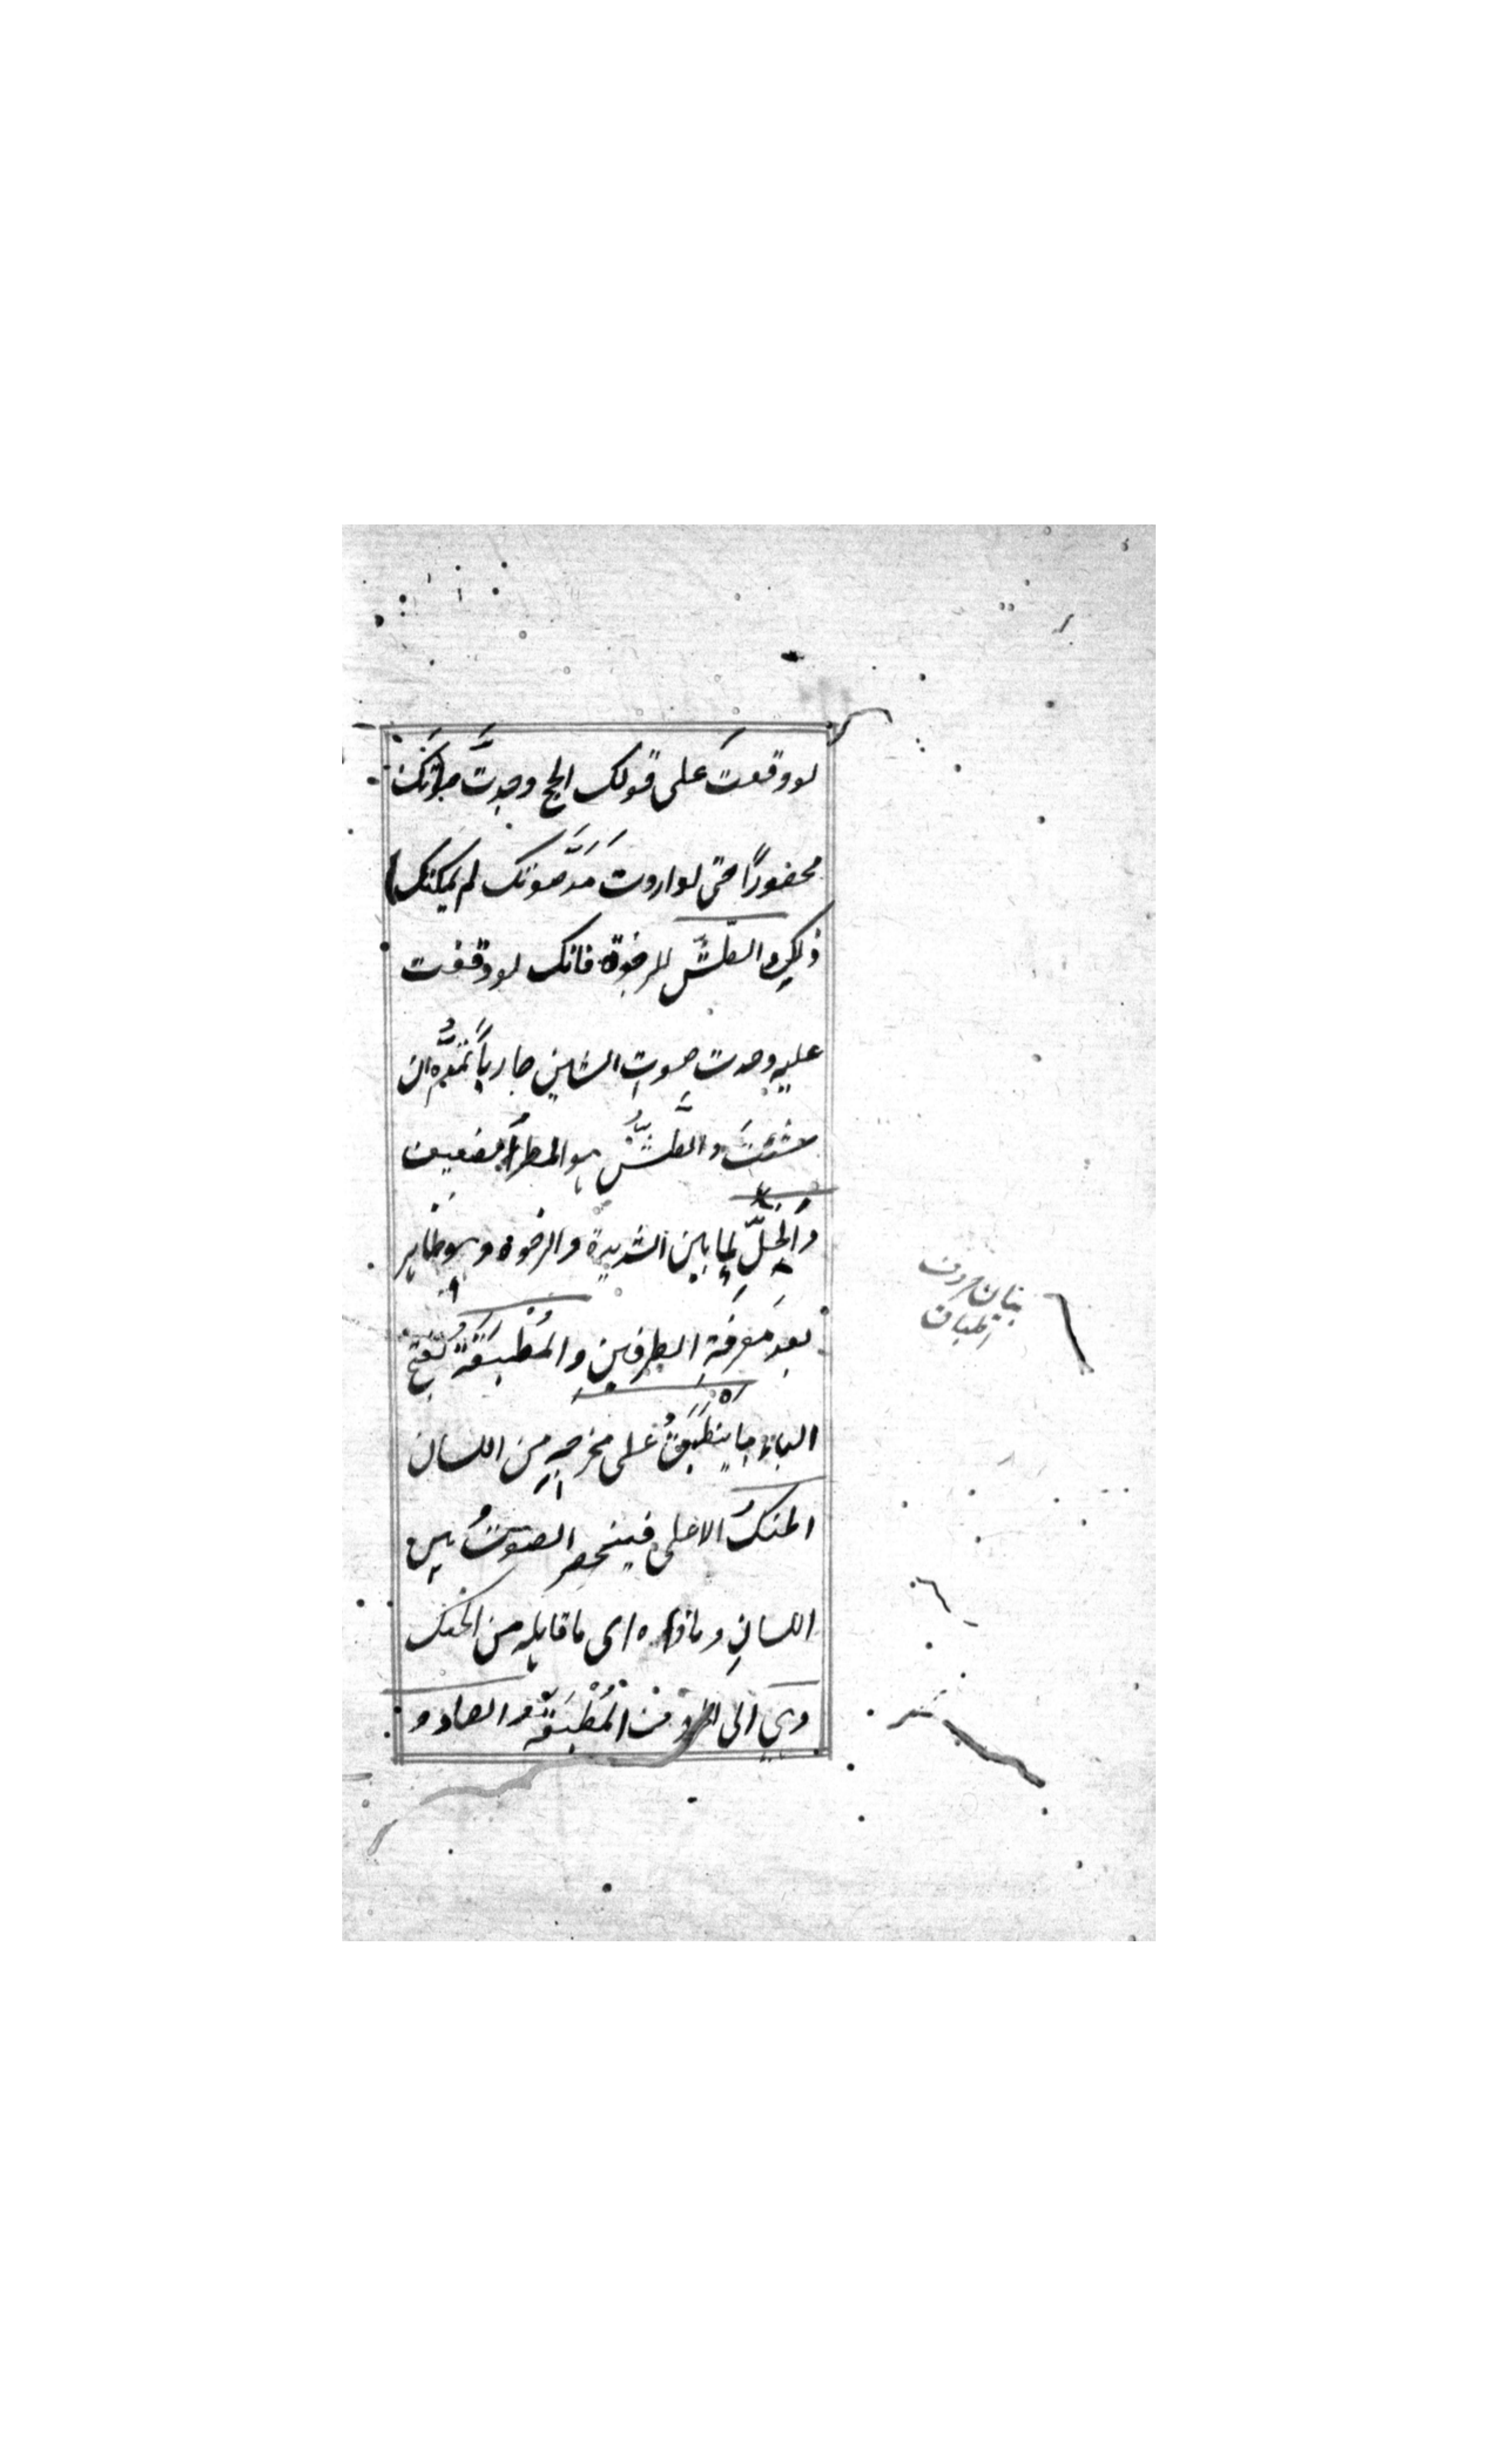 لو وقعتَ على قولك الحج وجدتَّ
محصورًا حتى لو اردت مَدَّ صوتك لم يمكنك
ذلك والطشّ للرخوة فانك لو وقفت
عليه وجدت صوت الشين جارياً تمدُّه ان
شئتَ والطشُّ هو المطر الضعيف
والخلّ لما بين الشديدة والرخوة وهو ظاهر
بعد معرفة الطرفين والمُطْبَقَةُ بفتح
الباء ما ينطبقُ على مخرجه من اللسان
الحنكُ الاعلى فينحصر الصوتُ بين
اللسان وما حاذاه اى ما قابله من الحنك
وهي اى الحروف المُطْبَقَة والصاد و
بيان حروف
اطباق